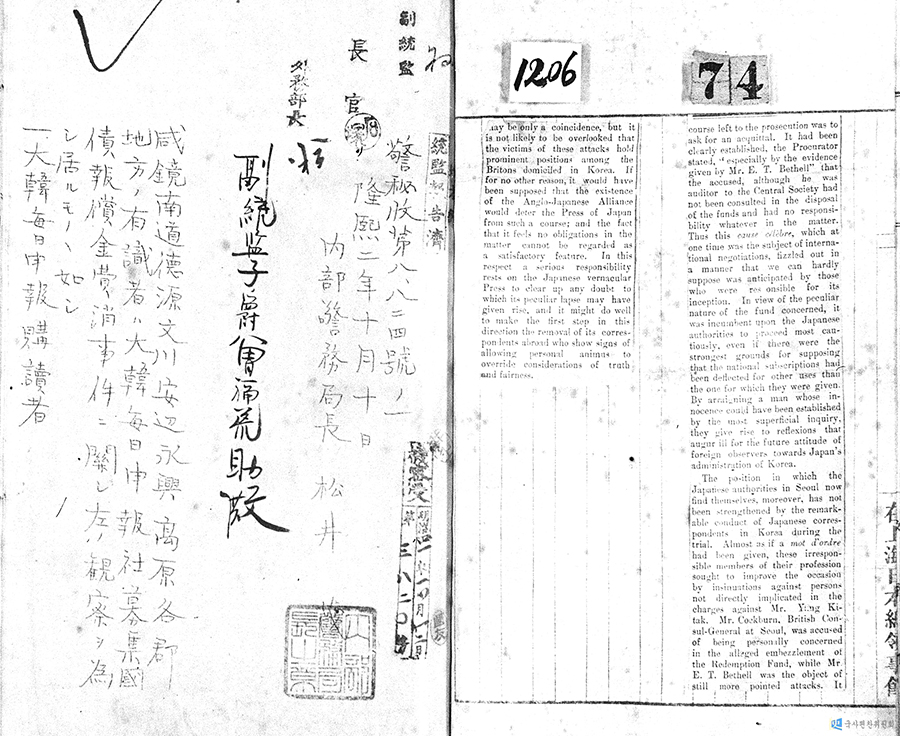 1206
74
course left to the prosecution was to
ask for an acquittal. It had been
clearly established, the Procurator
stated, "especially by the evidence
given by Mr. E. T. Bethell" that
the accused, although he was
auditor to the Central Society had
not been consulted in the disposal
of the funds and had no responsi-
bility whatever in the matter.
Thus this cause célèbre, which at
one time was the subject of interna-
tional negotiations, fizzled out in
a manner that we can hardly
suppose was anticipated by those
who were res onsible for its
inception. In view of the peculiar
nature of the fund concerned, it
was incumbent upon the Japanese
authorities to proceed most cau-
tiously, even if there were the
strongest grounds for supposing
that the national subscriptions had
been deflected for other uses than
the one for which they were given.
By arraigning a man whose in-
nocence could have been established
by the most superficial inquiry,
they give rise to reflexions that
augur ill for the future attitude of
foreign observers towards Japan's
administration of Korea.
The position in which the
Japanese authorities in Seoul now
find themselves, moreover, has not
been strengthened by the remark-
able conduct of Japanese corres-
pondents in Korea during the
trial. Almost as if a mot d'ordre
had been given, these irrespon-
sible members of their profession
sought to improve the occasion
by insinuations against persons
not directly implicated in the
charges against Mr. Yang Ki-
tak. Mr. Cockburn, British Con-
sul-General at Seoul, was accused
of being personally concerned
in the alleged embezzlement of
the Redemption Fund, while Mr
E. T. Bethell was the object of
still more pointed attacks. It
may be only a coincidence, but it
is not likely to be overlooked that
the victims of these attacks hold
prominent positions among the
Britons domiciled in Korea. If
for no other reason, it would have
been supposed that the existence
of the Anglo-Japanese Alliance
would deter the Press of Japan
from such a course; and the fact
that it feels no obligations in the
matter cannot be regarded as
a satisfactory feature. In this
respect a serious responsibility
rests on the Japanese vernacular
Press to clear up any doubt to
which its peculiar lapse may have
given rise, and it might do well
to make the first step in this
direction the removal of its corres-
pondents abroad who show signs of
allowing personal animus to
override considerations of truth
and fairness.
在上海日本總領事館
統監報告濟
副統監
長官
外務部長
警秘收第八八二四號ノ一
隆熙二年十月十日
內部警務局長 松井
副統監子爵曾禰荒助殿
咸鏡南道德源文川安辺永興高原各郡
地方有識者ハ大韓每日申報社募集國
債報償金費消事件ニ關シ左ノ觀察ヲ為
シ居ルモノヽ如シ
一大韓每日申報購讀者
국사편찬위원회